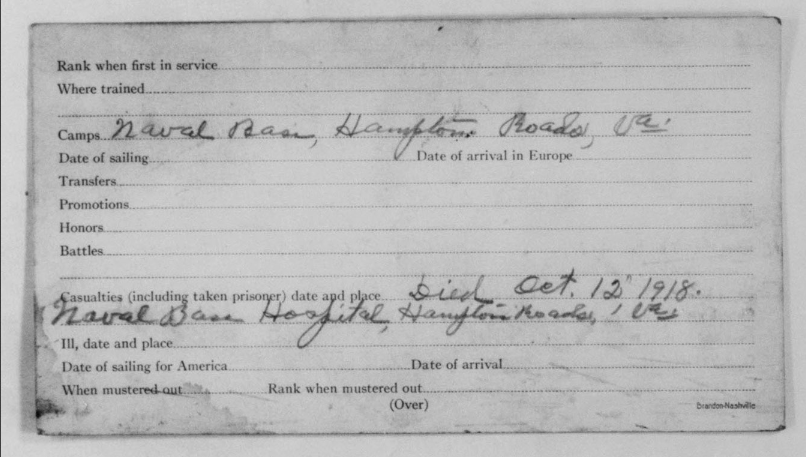 Rank when first in service
Where trained
Camps Naval Base, Hampton Roads, Va.
Date of sailing Date of arrival in Europe
Transfers
Promotions
Honors
Battles
Casualties (including taken prisoner) date and place Died Oct. 12" 1918.
Naval Base Hospital, Hampton Roads, Va.
Ill, date and place
Date of sailing for America Date of arrival
When mustered out Rank when mustered out
(Over)
Brandon-Nashville